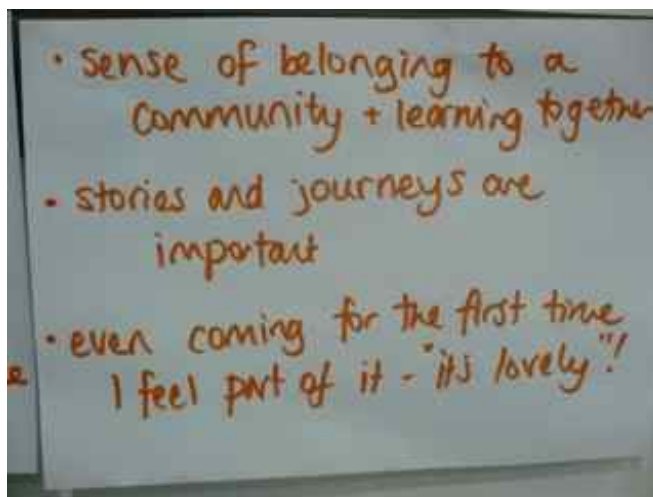 • sense of belonging to a
community + learning together
• stories and journeys are
important
• even coming for the first time
I feel part of it - "its lovely"!